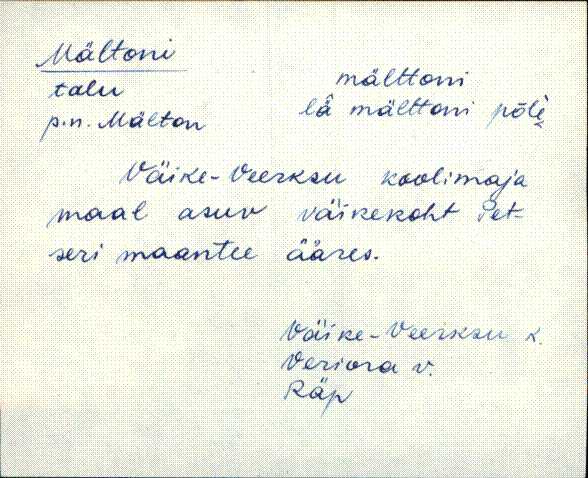 Mältoni
talu
p.n. Mälton
mälttoni
lä mälttoni pōlè
Väike-Veerksu koolimaja
maal asuv väikekoht Pet-
seri maantee ääres.
Väike-Veerksu k.
Veriora v.
Räp